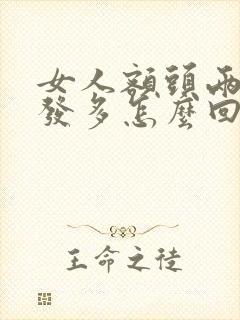 女人額頭兩
發多怎麼回
王命之徒